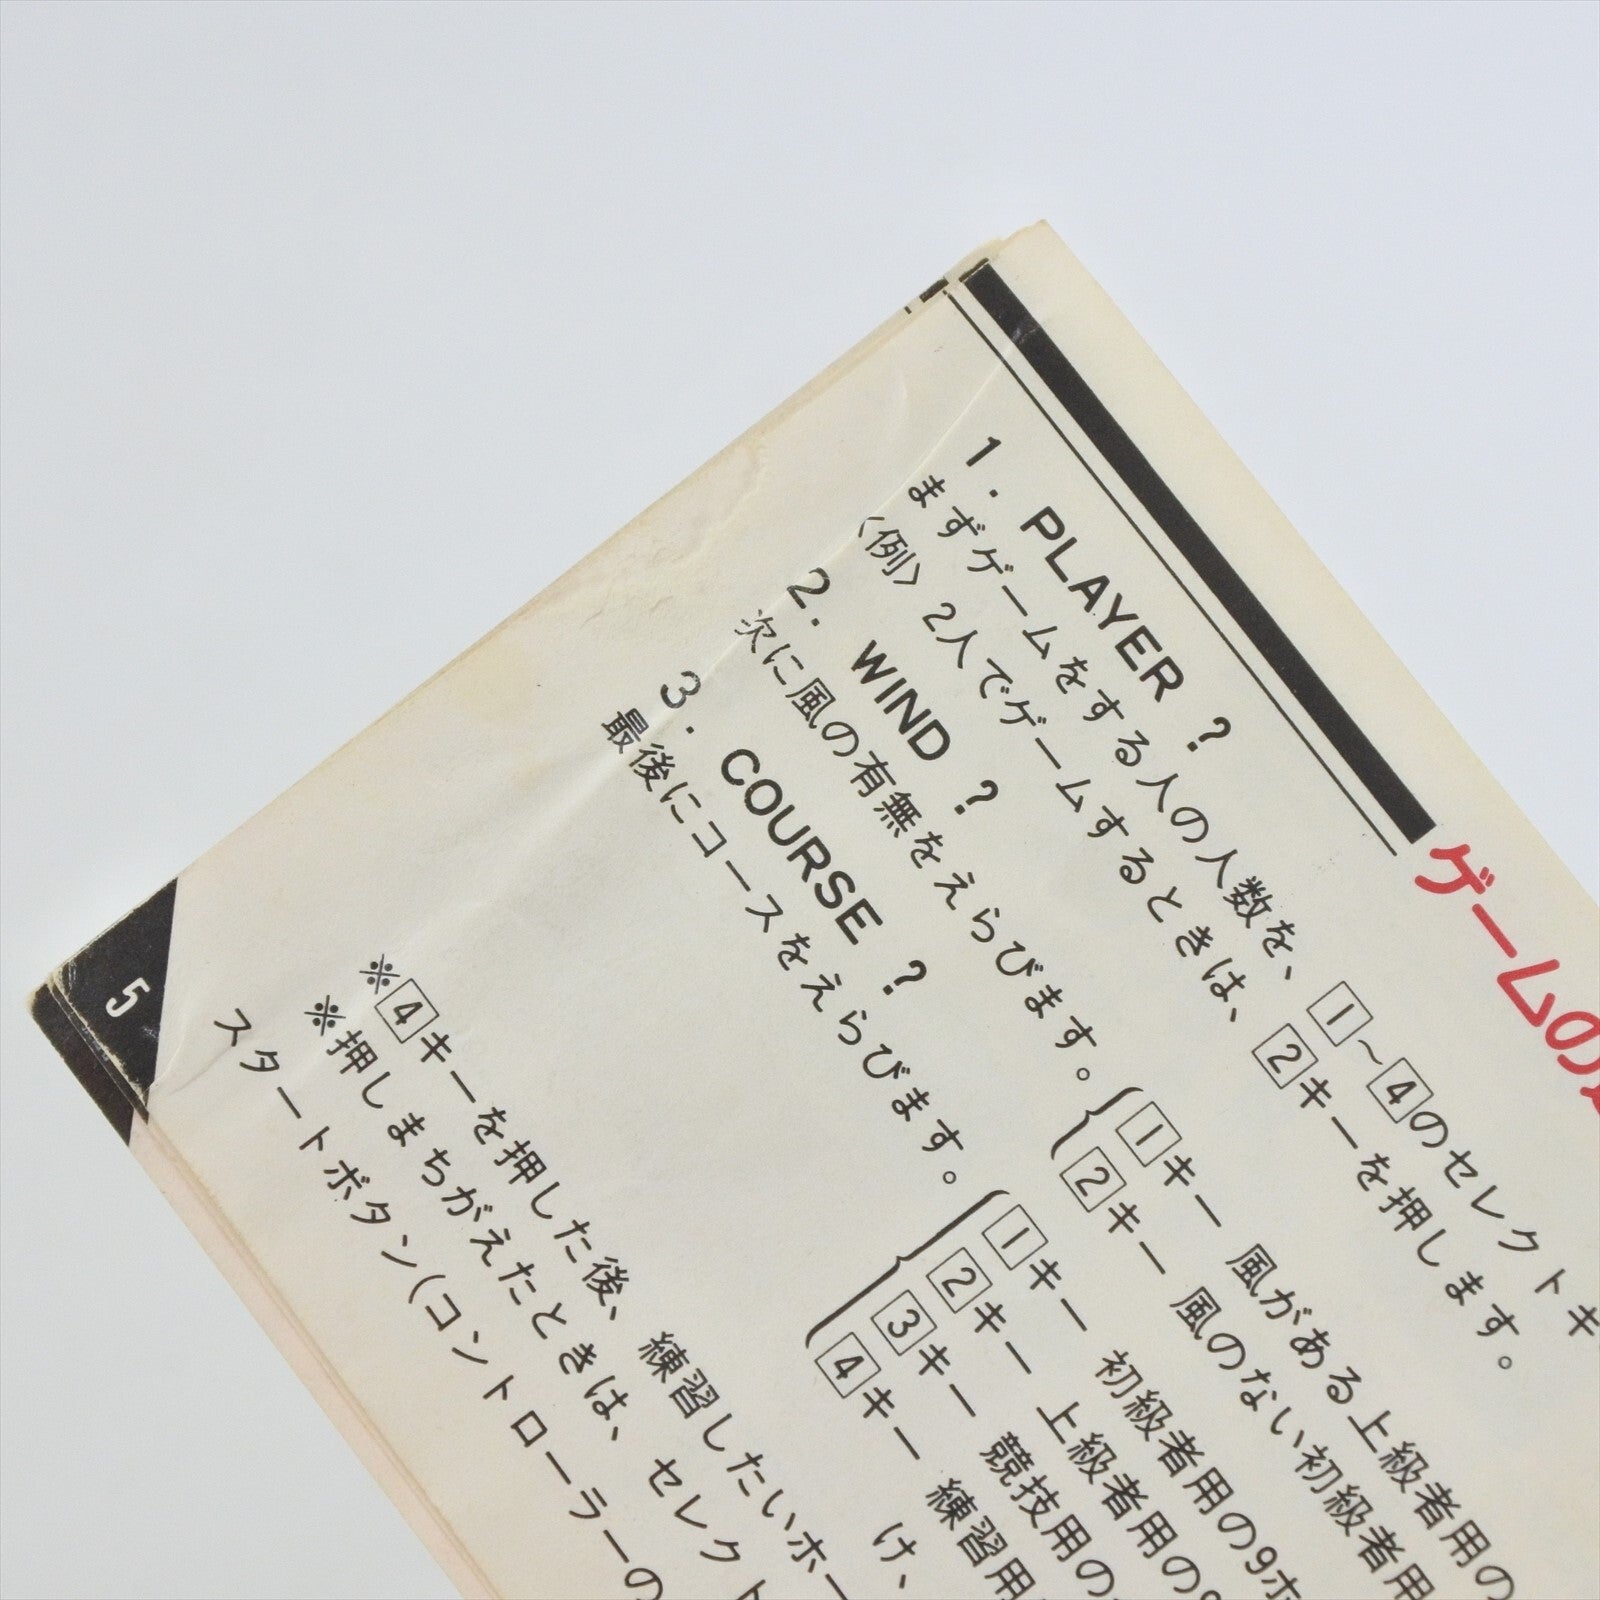 ゲームの
1. PLAYER ?
まずゲームをする人の人数を、1~4のセレクトキ
〈例〉 2人でゲームするときは、2キーを押します。
2. WIND ?
次に風の有無をえらびます。
1キー 風がある上級者用の
2キー 風のない初級者用
3. COURSE ?
最後にコースをえらびます。
1キー 初級者用の9ホ
2キー 上級者用の9
3キー 競技用の
4キー 練習用
け、
※4キーを押した後、練習したいホー
※押しまちがえたときは、セレクト
スタートボタン(コントローラーの
5